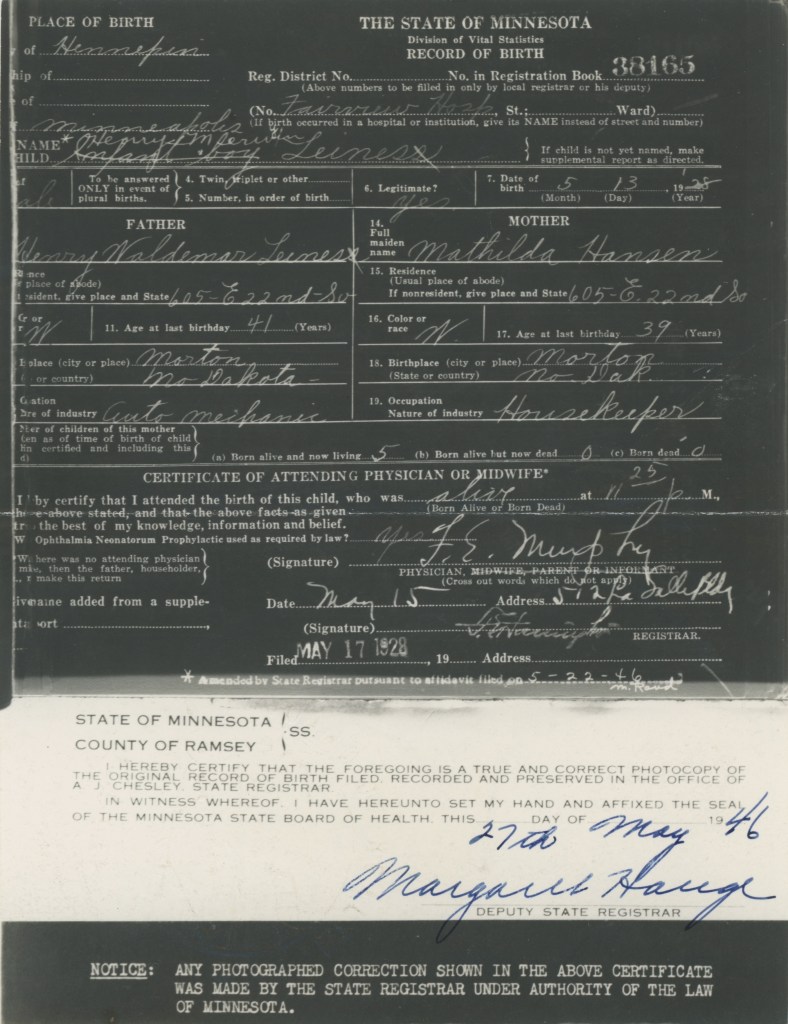 PLACE OF BIRTH
THE STATE OF MINNESOTA
Division of Vital Statistics
RECORD OF BIRTH
of Hennepin
hip of
Reg. District No. No. in Registration Book 38165
(Above numbers to be filled in only by local registrar or his deputy)
of
(No. Fairview Hosp, St.; Ward)
(If birth occurred in a hospital or institution, give its NAME instead of street and number)
Minneapolis
NAME* Henry Merwin
HILD Infant Boy Leiness
If child is not yet named, make
supplemental report as directed.
of
To be answered
ONLY in event of
plural births.
4. Twin, triplet or other
5. Number, in order of birth
6. Legitimate? yes
7. Date of
birth 5 13, 1928
(Month) (Day) (Year)
FATHER
Henry Waldemar Leiness
ence
place of abode)
sident, give place and State 605-E 22nd-So
or
W
11. Age at last birthday 41 (Years)
place (city or place) Morton
or country) No Dakota
ation
re of industry Auto mechanic
MOTHER
14.
Full
maiden
name Mathilda Hansen
15. Residence
(Usual place of abode)
If nonresident, give place and State 605-E. 22nd So
16. Color or
race W.
17. Age at last birthday 39 (Years)
18. Birthplace (city or place) Morton
(State or country) No Dak.
19. Occupation
Nature of industry Housekeeper
er of children of this mother
en as of time of birth of child
in certified and including this
d)
(a) Born alive and now living 5 (b) Born alive but now dead 0 (c) Born dead 0
CERTIFICATE OF ATTENDING PHYSICIAN OR MIDWIFE*
I by certify that I attended the birth of this child, who was alive at 11 25 p. M.,
(Born Alive or Born Dead)
e above stated, and that the above facts as given
the best of my knowledge, information and belief.
W Ophthalmia Neonatorum Prophylactic used as required by law? yes
here was no attending physician
then the father, householder,
make this return
(Signature) F. E. Murphy
PHYSICIAN, MIDWIFE, PARENT OR INFORMANT
(Cross out words which do not apply)
name added from a supple-
ort
Date May 15 Address 512 La Salle Bldg
(Signature) REGISTRAR.
Filed MAY 17 1928, 19 Address
* Amended by State Registrar pursuant to affidavit filed on 5-22-46
STATE OF MINNESOTA
COUNTY OF RAMSEY
SS.
I HEREBY CERTIFY THAT THE FOREGOING IS A TRUE AND CORRECT PHOTOCOPY OF
THE ORIGINAL RECORD OF BIRTH FILED, RECORDED AND PRESERVED IN THE OFFICE OF
A. J. CHESLEY, STATE REGISTRAR.
IN WITNESS WHEREOF, I HAVE HEREUNTO SET MY HAND AND AFFIXED THE SEAL
OF THE MINNESOTA STATE BOARD OF HEALTH, THIS DAY OF 1946
27th May
Margaret Hauge
DEPUTY STATE REGISTRAR
NOTICE: ANY PHOTOGRAPHED CORRECTION SHOWN IN THE ABOVE CERTIFICATE
WAS MADE BY THE STATE REGISTRAR UNDER AUTHORITY OF THE LAW
OF MINNESOTA.